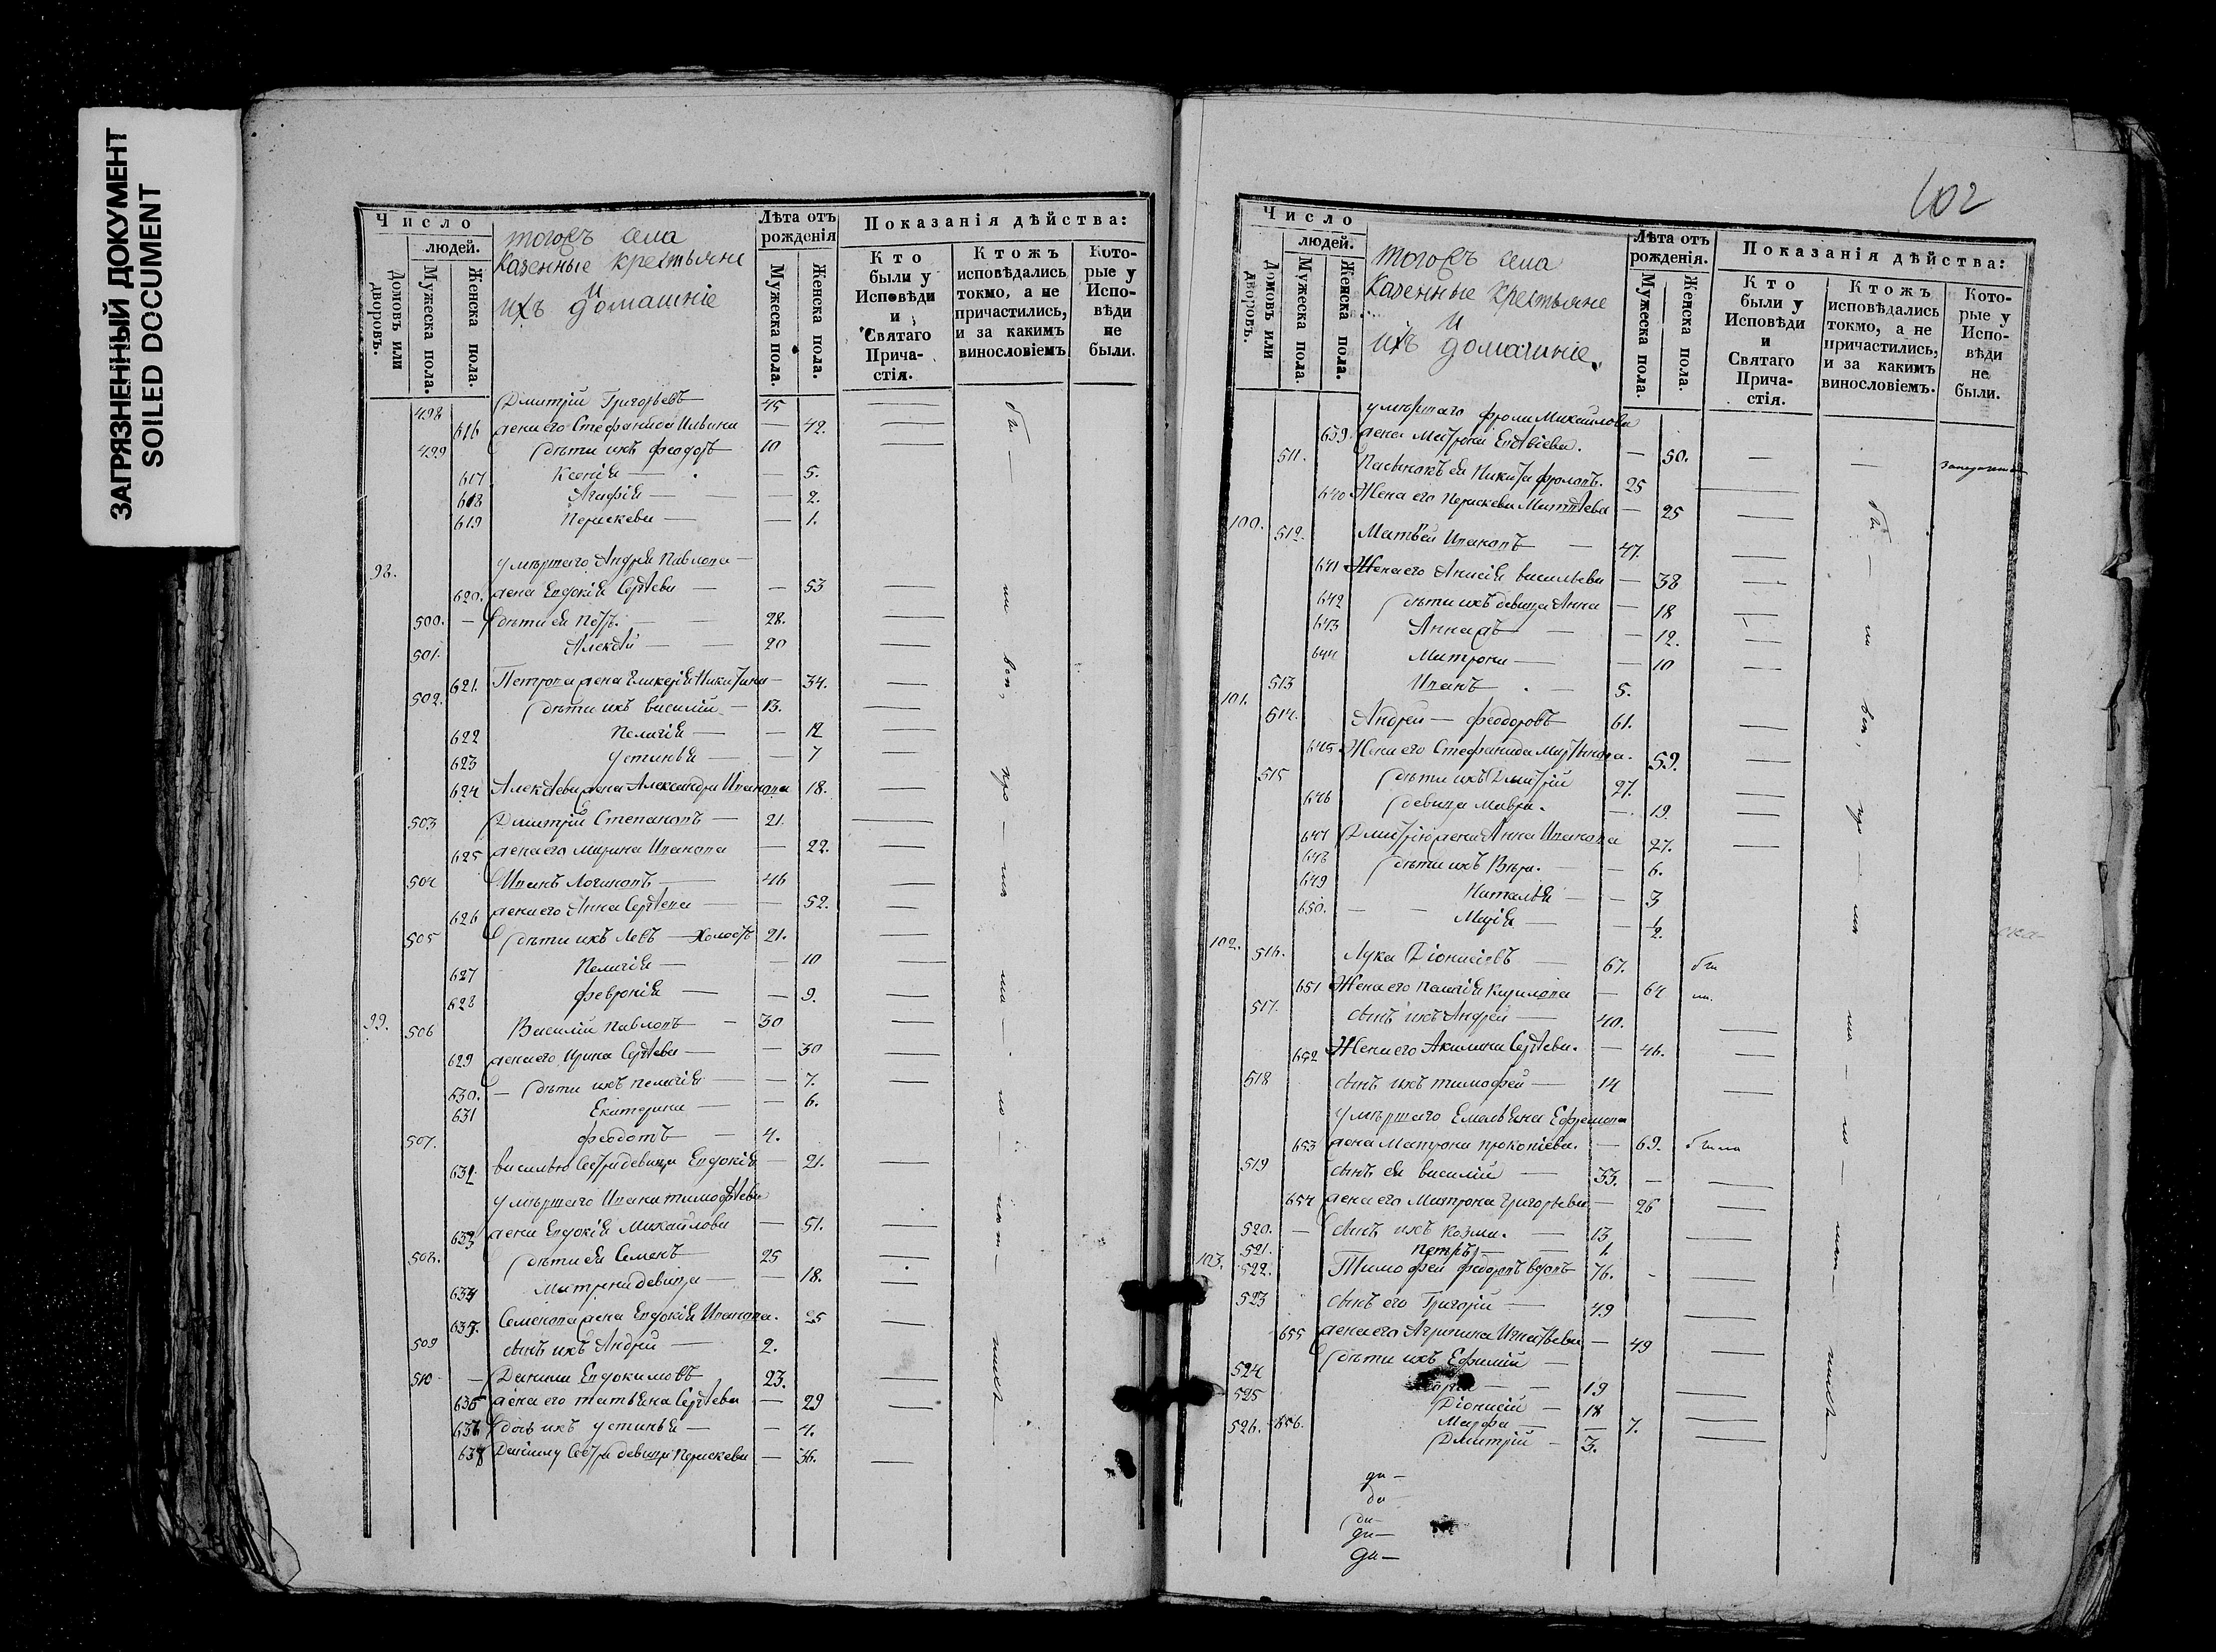 ЗАГРЯЗНЕННЫЙ ДОКУМЕНТ
SOILED DOCUMENT
Число
людей.
Домовъ или дворовъ.
Мужеска пола.
Женска пола.
тогожъ села
Казенные крестьяне
и
ихъ домашніе
Лѣта отъ рожденія
Мужеска пола.
Женска пола.
Показанія дѣйства:
Кто были у Исповѣди и Святаго Прича-стія.
Ктожъ исповѣдались токмо, а не причастились, и за какимъ винословіемъ
Кото-рые у Испо-вѣди не были.
498 Дмитрій Григорьевъ 45
616 жена его Стефанида — 42.
499 дѣти ихъ Феодоръ 10
617 Ксенія — — 5.
618 Агафія — — 2.
619 Параскева — — 1.
98. умершаго Андрея Павлова —
620. жена Евдокія Сергѣева — — 53
500. — дѣти ея Петръ. — 28.
501. Алексѣй — — 20
621. Петрова жена Гликерія Никитина — 34.
502. дѣти ихъ Василій — 13.
622 Пелагія — — 12
623 Устинья — — 7
624 Алексѣева жена Александра Иванова 18.
503 Дмитрій Степановъ — 21.
625 жена его Марина Иванова — 22.
504 Иванъ Логиновъ — 46
626 жена его Анна Сергѣева — — 52.
505 дѣти ихъ Левъ — холостъ 21.
627 Пелагія — — 10
628 Февронія — — 9.
99. 506 Василій Павловъ — 30
629 жена его Ирина Сергѣева — — 30
630. — дѣти ихъ Пелагія — — 7.
631 Екатерина — — 6.
507. Феодотъ — 4.
632 Василью сестра девица Евдокія — 21.
умершаго Ивана Тимофѣева
633 жена Евдокія Михайлова — 51.
508. дѣти ея Семенъ 25
634 Матрена девица — — 18.
635. Семенова жена Евдокія Иванова. 25
509 сынъ ихъ Андрей — 2.
510 — Данила Евдокимовъ 23.
636 жена его Татьяна Сергѣева — 29
637 дочь ихъ Устинья — — 4.
638 Данилу сестра девица Параскева — 36.
102
Число
людей.
Домовъ или дворовъ.
Мужеска пола.
Женска пола.
тогожъ села
Казенные крестьяне
и
ихъ домашніе.
Лѣта отъ рожденія.
Мужеска пола.
Женска пола.
Показанія дѣйства:
Кто были у Исповѣди и Святаго Прича-стія.
Ктожъ исповѣдались токмо, а не причастились, и за какимъ винословіемъ.
Кото-рые у Испо-вѣди не были.
умершаго Фрола Михайлова
639. жена Матрона — 50.
511. Пасынокъ ея Никита Фроловъ. 25
640 Жена его Параскева Матвѣева — 25
100. 512. Матвѣй Ивановъ — 47.
641 Жена его Анисія Васильева — 38
642 дѣти ихъ девица Анна — 18
643 Анна — — 12.
644 Матрона — — 10
513 Иванъ — 5.
101. 514. Андрей — Феодоровъ 61.
645 Жена его Стефанида Мартинова. 59.
515 дѣти ихъ Дмитрій 27.
646 девица Мавра. — 19.
647 Дмитрію жена Анна Иванова 27.
648 дѣти ихъ Вѣра. — 6.
649 Наталья — — 3
650. — — Марія — — 1/2.
102. 516. Лука Діонисіевъ — 67.
651 Жена его Пелагія Кирилова — 64
517. сынъ ихъ Андрей — 40.
652 Жена его Акилина Сергѣева. — 46.
518 сынъ ихъ Тимофей — 14
умершаго Емельяна Ефремова
653 жена Матрона Прокопіева. — 69. была
519 сынъ ея Василій — 33.
654 жена его Матрона Григорьева — 26
520. — сынъ ихъ Козма. — 13
521. Петръ — 1.
103. 522. Тимофей Федоровъ вдовъ 76.
523 сынъ его Григорій — 49
655 жена его Агрипина Игнатьева — 49
524 дѣти ихъ Ефимій —
525 19
Діонисій — 18
526. 656. Марфа — — 7.
Дмитрій — 3.
да —
да
да —
да —
да —